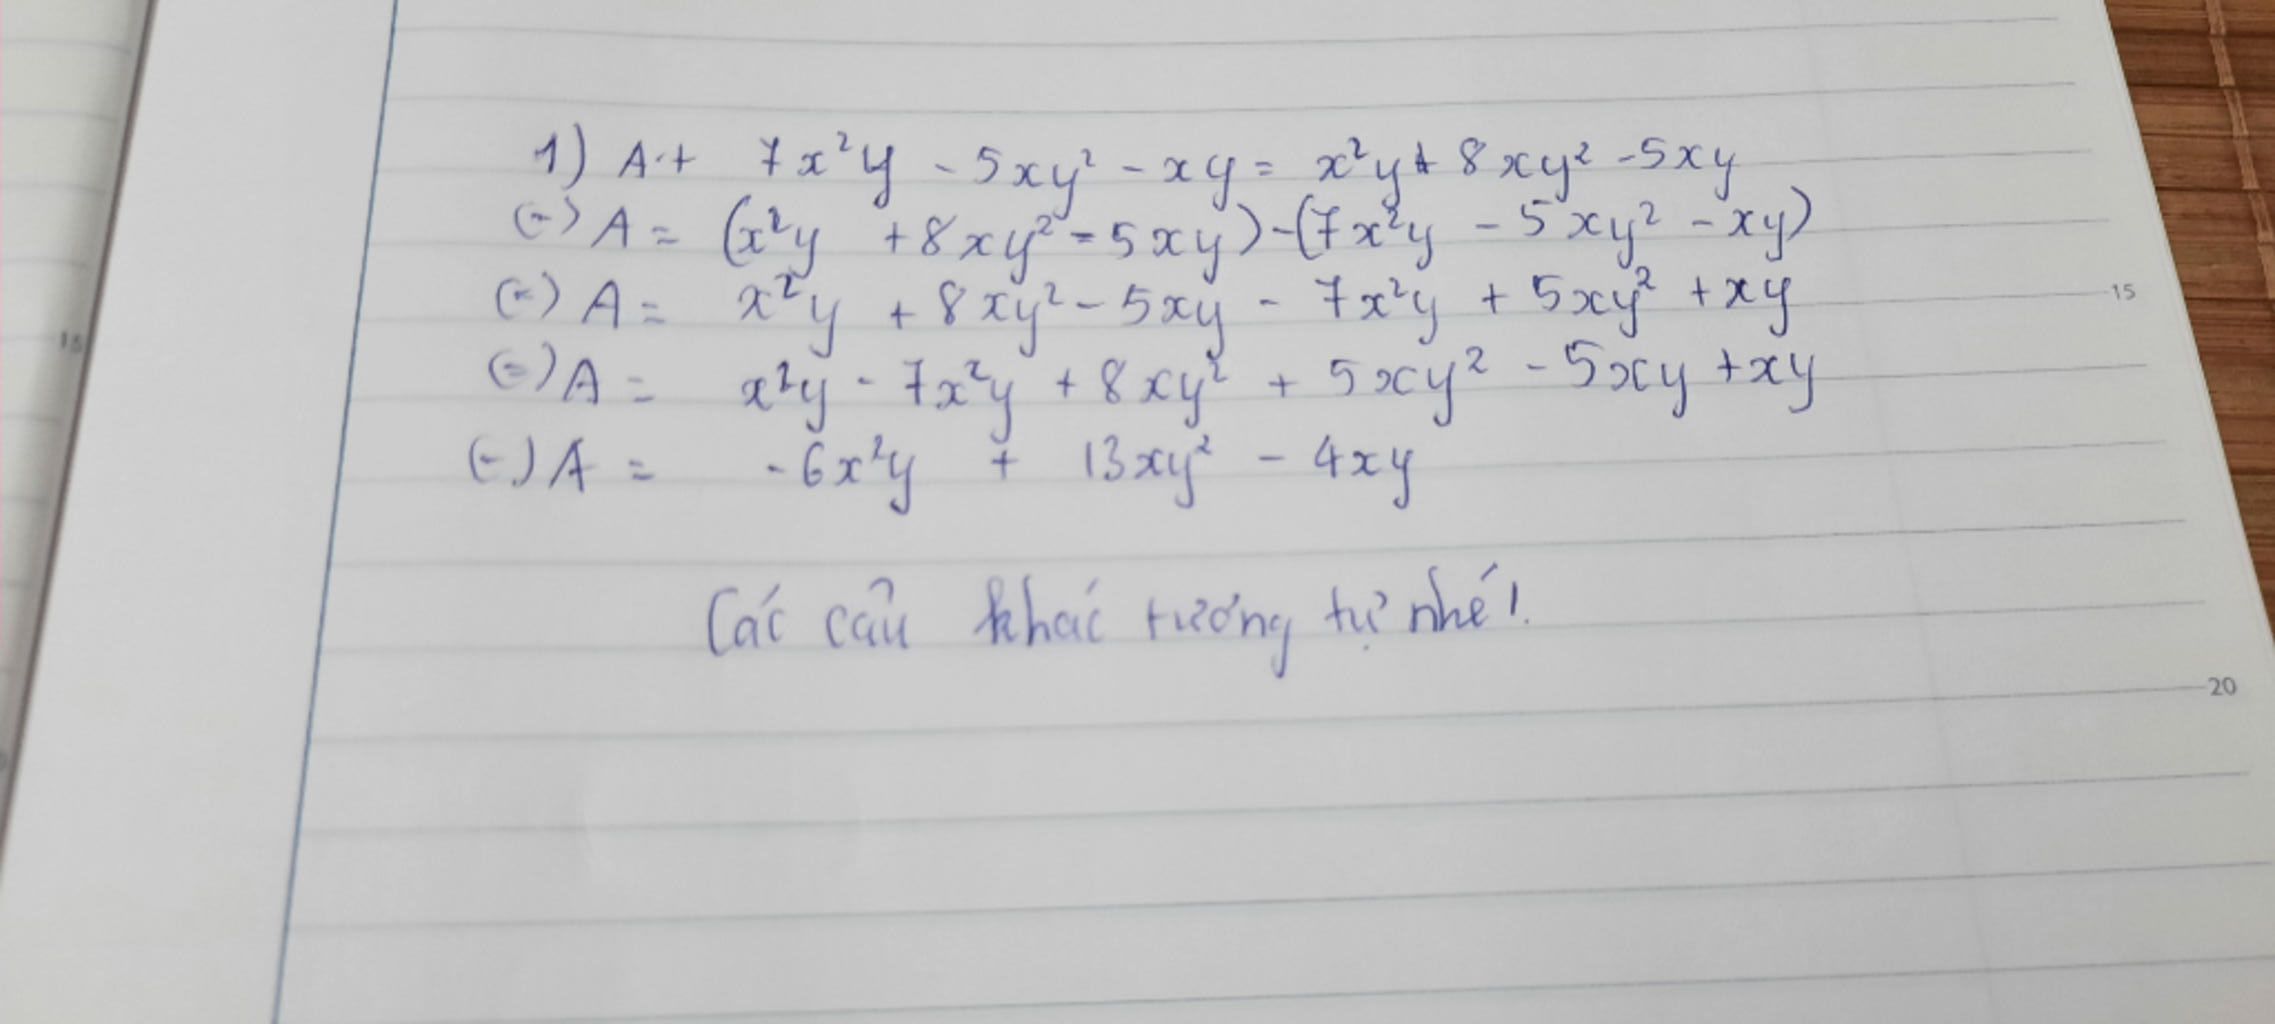 1) A + 7x²y - 5xy² - xy = x²y + 8xy² - 5xy
(=) A = (x²y + 8xy² - 5xy) - (7x²y - 5xy² - xy)
(=) A = x²y + 8xy² - 5xy - 7x²y + 5xy² + xy
(=) A = x²y - 7x²y + 8xy² + 5xy² - 5xy + xy
(=) A = -6x²y + 13xy² - 4xy
Các câu khác tương tự nhé!
15
15
20